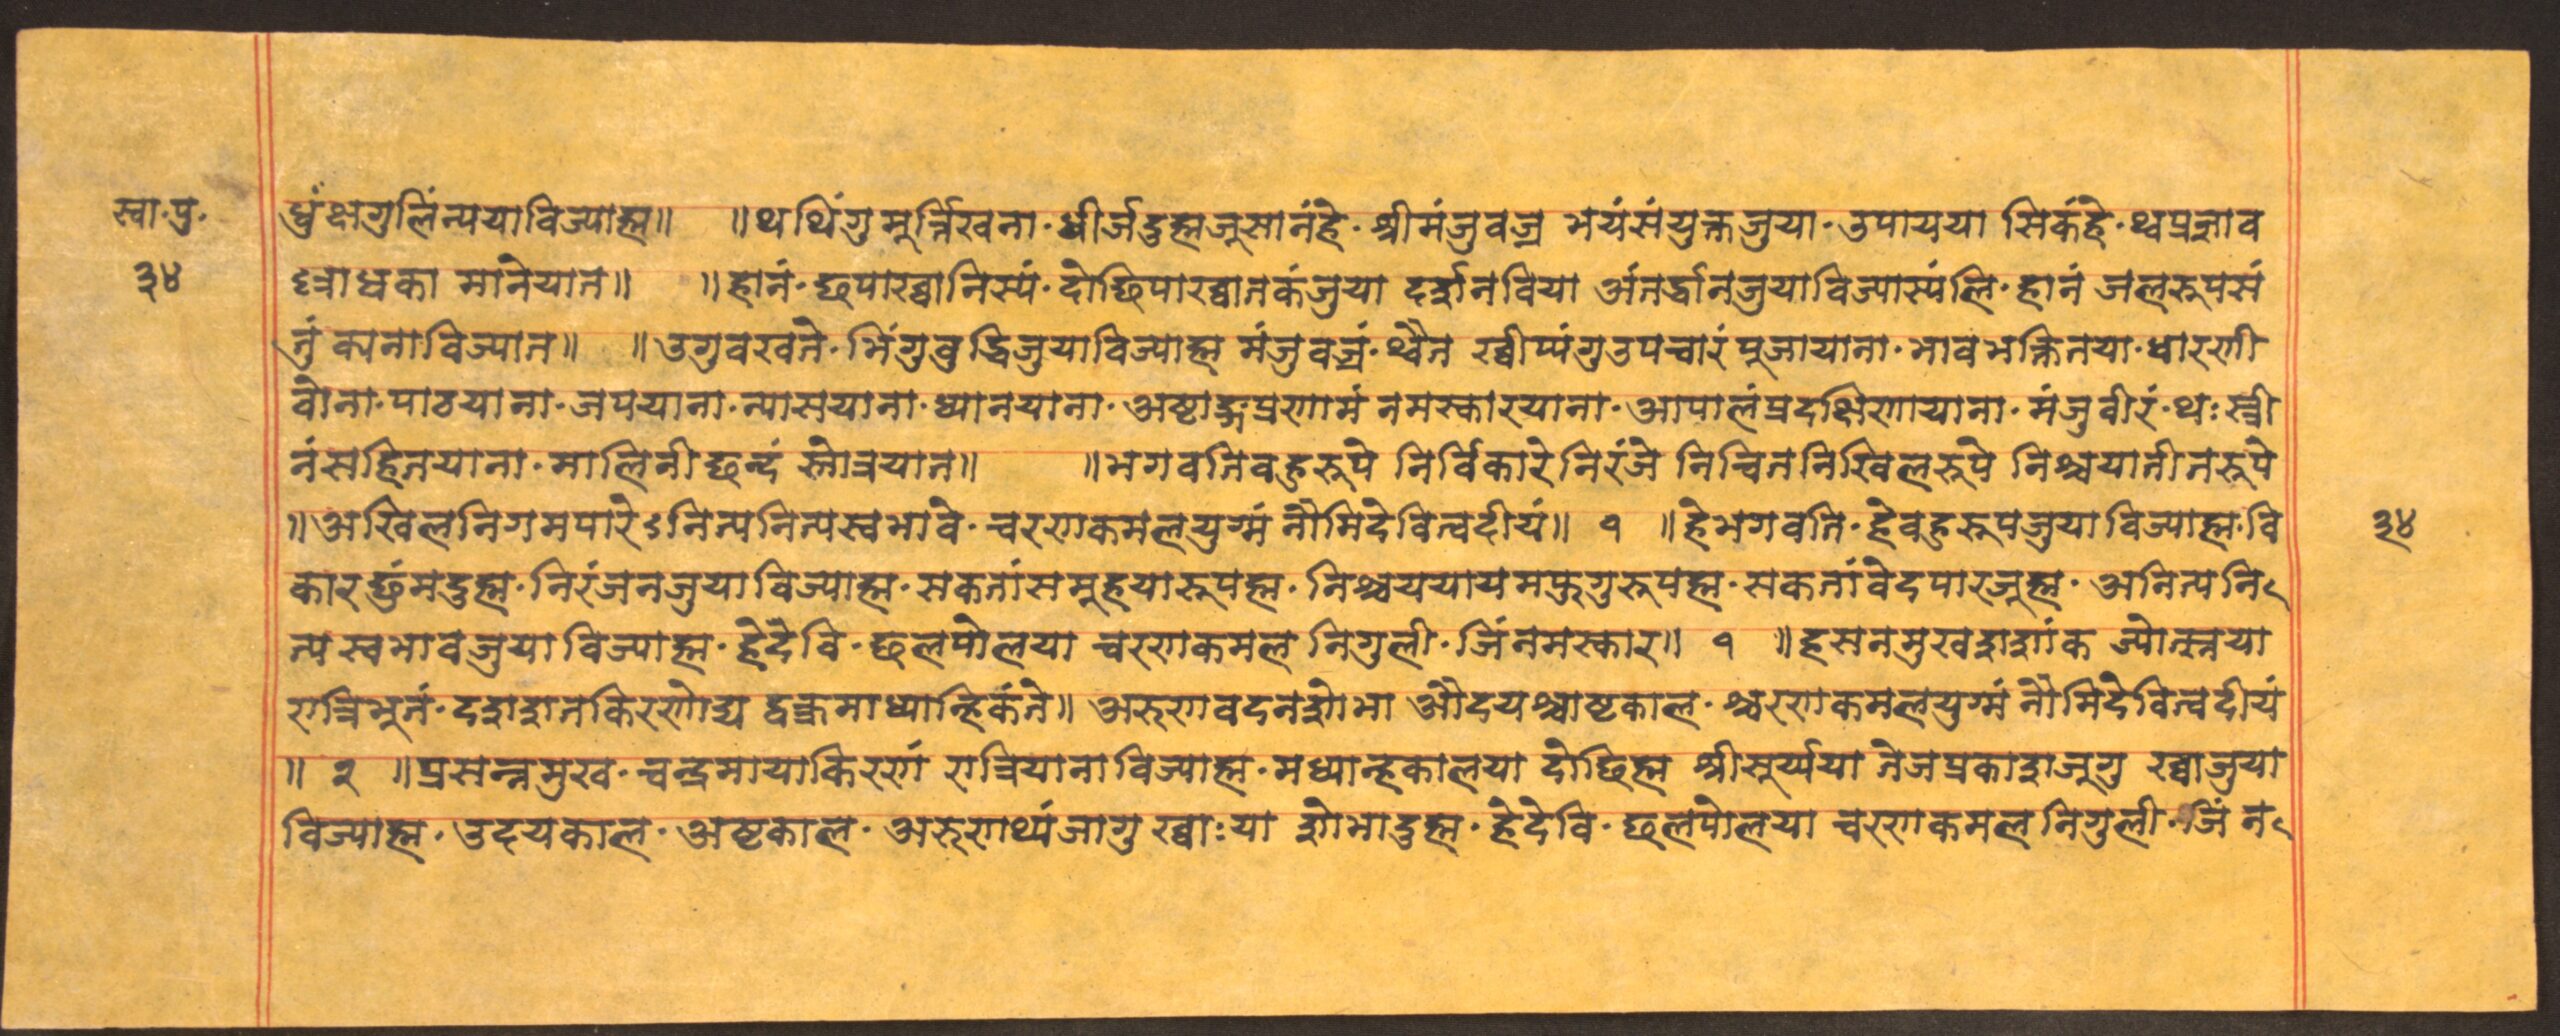 स्वा॰पु॰
३४
धुंक्षगुलिंन्पयाविज्याह्म॥ ॥थथिंगुमुर्न्निखना॰धीर्जदुह्मजुसानंहे॰श्रीमंजुवज्र भयंसंयुक्तजुया॰उपायया सिकंहे॰थ्वप्रज्ञाव
ह्नाधका मानेयात॥ ॥हानं॰छपाख्वानिस्यं॰दोछिपाख्वातकंजुया दर्शनविया अंतर्द्धानजुयाविज्यास्यंलि॰हानं जलरुपसं
तुं क्यनाविज्यात॥ ॥उगुवखते॰भिंगुबुद्धिजुयाविज्याह्म मंजुवज्रं॰थ्वैत ख्वीप्यंगुउपचारं पूजायाना॰भावभक्तितया॰धारणी
वोना॰पाठयाना॰जपयाना॰न्यासयाना॰ध्यानयाना॰अष्टाङ्गप्रणामं नमस्कारयाना॰आपालंप्रदक्षिणायाना॰मंजुवीरं॰थःस्त्री
नंसहितयाना॰मालिनीछन्दं स्तोत्रयात॥ ॥भगवतिवहुरुपे निर्विकारेनिरंजे निन्वितनिखिलरुपे निश्चयातीतरुपे
॥अखिलनिगमपारेऽनित्यनित्यस्वभावे॰चरणकमलयुग्मं नौमिदेवित्वदीयं॥ १ ॥हेभगवति॰हेवहुरुपजुयाविज्याह्म॰वि
कारछुंमदुह्म॰निरंजनजुयाविज्याह्म॰सकतांसमुहयारुपह्म॰निश्चययायमफुगुरुपह्म॰सकतांवेदपारजुह्म॰अनित्यनि
त्यस्वभावजुयाविज्याह्म॰हेदेवि॰छलपोलया चरणकमल निगुली॰जिंनमस्कार॥ १ ॥हसनमुखशशांक ज्योत्स्नया
रात्रिभुतं॰दशशतकिरणोद्य द्वक्त्रमाध्यान्हिकंते॥ अरुणवदनशोभा औदयश्चाष्टकाल॰श्चरणकमलयुग्मं नौमिदेवित्वदीयं
॥ २ ॥प्रसन्नमुख॰चन्द्रमायाकिरणं रात्रियानाविज्याह्म॰मध्यान्हकालया दोछिह्म श्रीसूर्य्यया तेजप्रकाशजूगु ख्वाजुया
विज्याह्म॰उदयकाल॰अष्टकाल॰अरुणथ्यंजागु ख्वाःया शोभादुह्म॰हेदेवि॰छलपोलया चरणकमल निगुली॰जिं न
३४